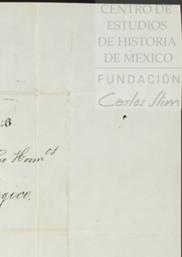 CENTRO DE
ESTUDIOS
DE HISTORIA
DE MEXICO
FUNDACIÓN
Carlos Slim
Herm.os